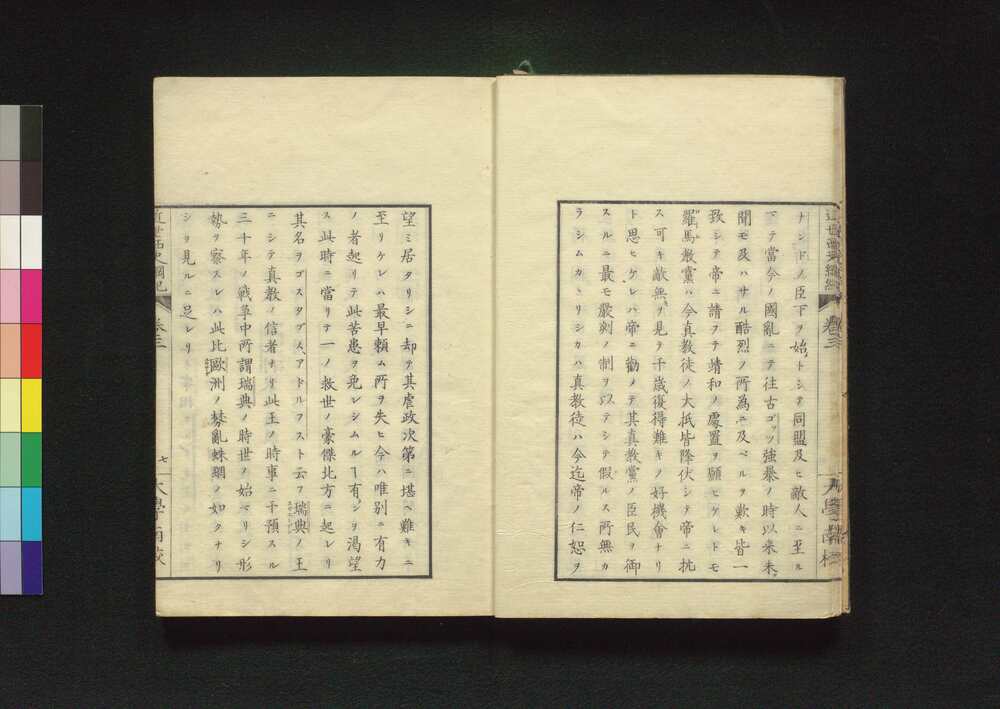 ナンドノ臣下ヲ始トシテ同盟及ヒ敵人ニ至ル
マテ當今ノ國亂ニテ往古ゴッツ強暴ノ時以來未
聞モ及ハサル酷烈ノ所為ニ及ベルヲ歎キ皆一
致シテ帝ニ請フテ靖和ノ處置ヲ願ヒケレドモ
羅馬教黨ハ今真教徒ノ大抵皆降伏シテ帝ニ抗
ス可キ敵無ヲ見テ千歳復得難キノ好機會ナリ
ト思ヒケレハ帝ニ勸メテ其真教黨ノ臣民ヲ御
スルニ最モ嚴刻ノ制ヲ以テシテ假ルス所無カ
ラシムカヽリシカハ真教徒ハ今迄帝ノ仁恕ヲ
近世西史綱紀
卷三
七
大學南校
望ミ居タリシニ却テ其虐政次第ニ堪ヘ難キニ
至リケレハ最早頼ム所ヲ失ヒ今ハ唯別ニ有力
ノ者起リテ此苦患ヲ免レシムルヿ有ンヲ渇望
ス此時ニ當リテ一ノ救世ノ豪傑北方ニ起レリ
其名ヲゴスタブス、アドルフスト云フ瑞典ノ王
ニシテ真教ノ信者ナリ此王ノ時事ニ干預スル
三十年ノ戰爭中所謂瑞典ノ時世ノ始マリシ形
勢ヲ察スレハ此比歐洲ノ棼亂蛛網ノ如クナリ
シヲ見ルニ足レリ
近世西史綱紀
卷三
七
大學南校